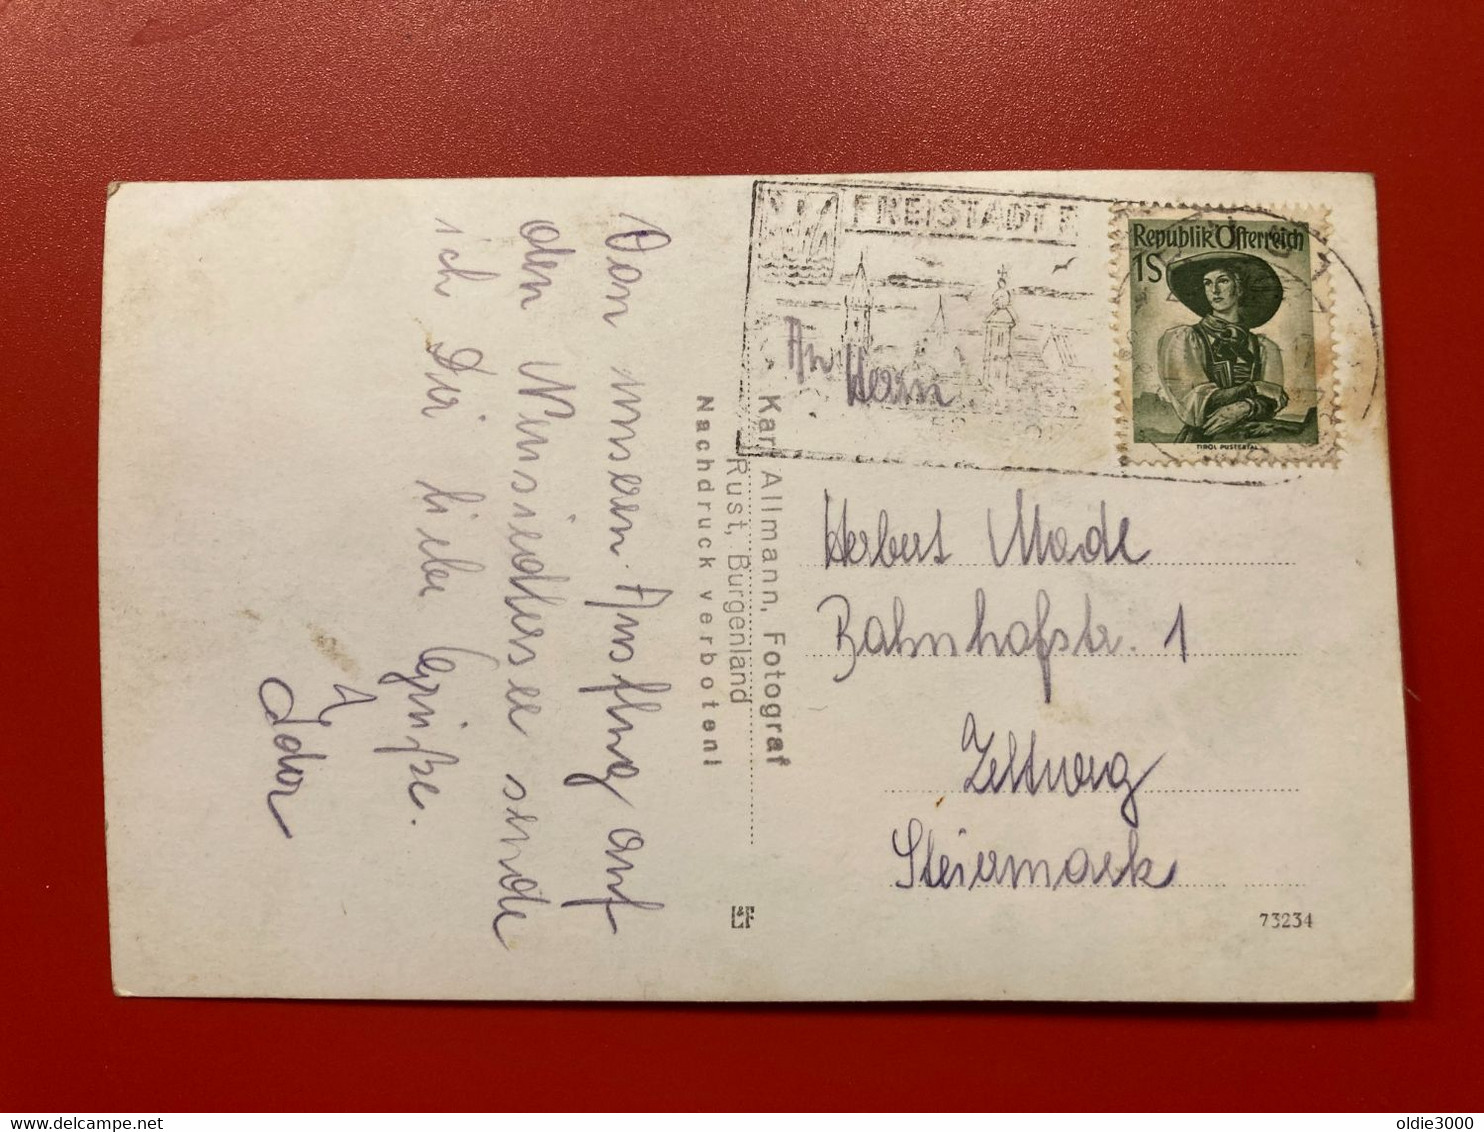 Von unserem Ausflug auf
den Neusiedlersee sende
ich Dir liebe Grüße.
Karl Allmann, Fotograf
Rust, Burgenland
Nachdruck verboten!
FREISTADT R
Republik Österreich
1S
TIROL PUSTERTAL
An Herrn
Herbert Mode
Bahnhofstr. 1
Zeltweg
Steiermark
73234
oldie3000